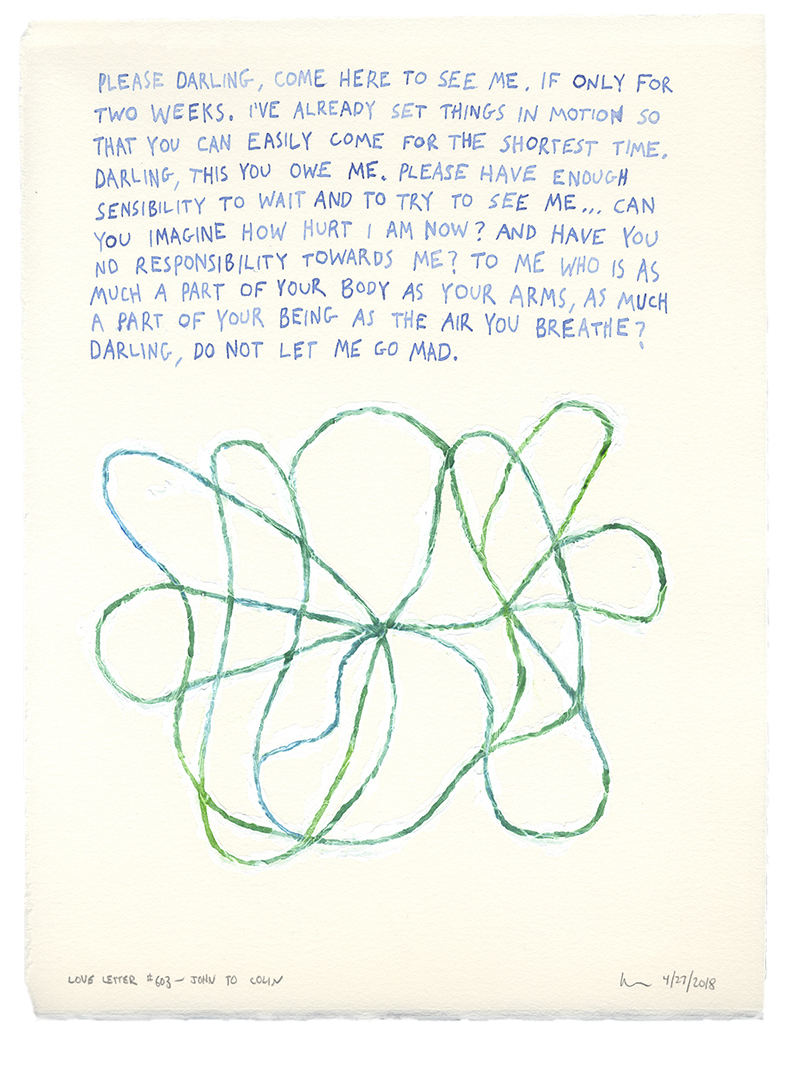 PLEASE DARLING, COME HERE TO SEE ME. IF ONLY FOR
TWO WEEKS. I'VE ALREADY SET THINGS IN MOTION SO
THAT YOU CAN EASILY COME FOR THE SHORTEST TIME.
DARLING, THIS YOU OWE ME. PLEASE HAVE ENOUGH
SENSIBILITY TO WAIT AND TO TRY TO SEE ME... CAN
YOU IMAGINE HOW HURT I AM NOW? AND HAVE YOU
NO RESPONSIBILITY TOWARDS ME? TO ME WHO IS AS
MUCH A PART OF YOUR BODY AS YOUR ARMS, AS MUCH
A PART OF YOUR BEING AS THE AIR YOU BREATHE?
DARLING, DO NOT LET ME GO MAD.
LOVE LETTER #603 – JOHN TO COLIN
4/27/2018